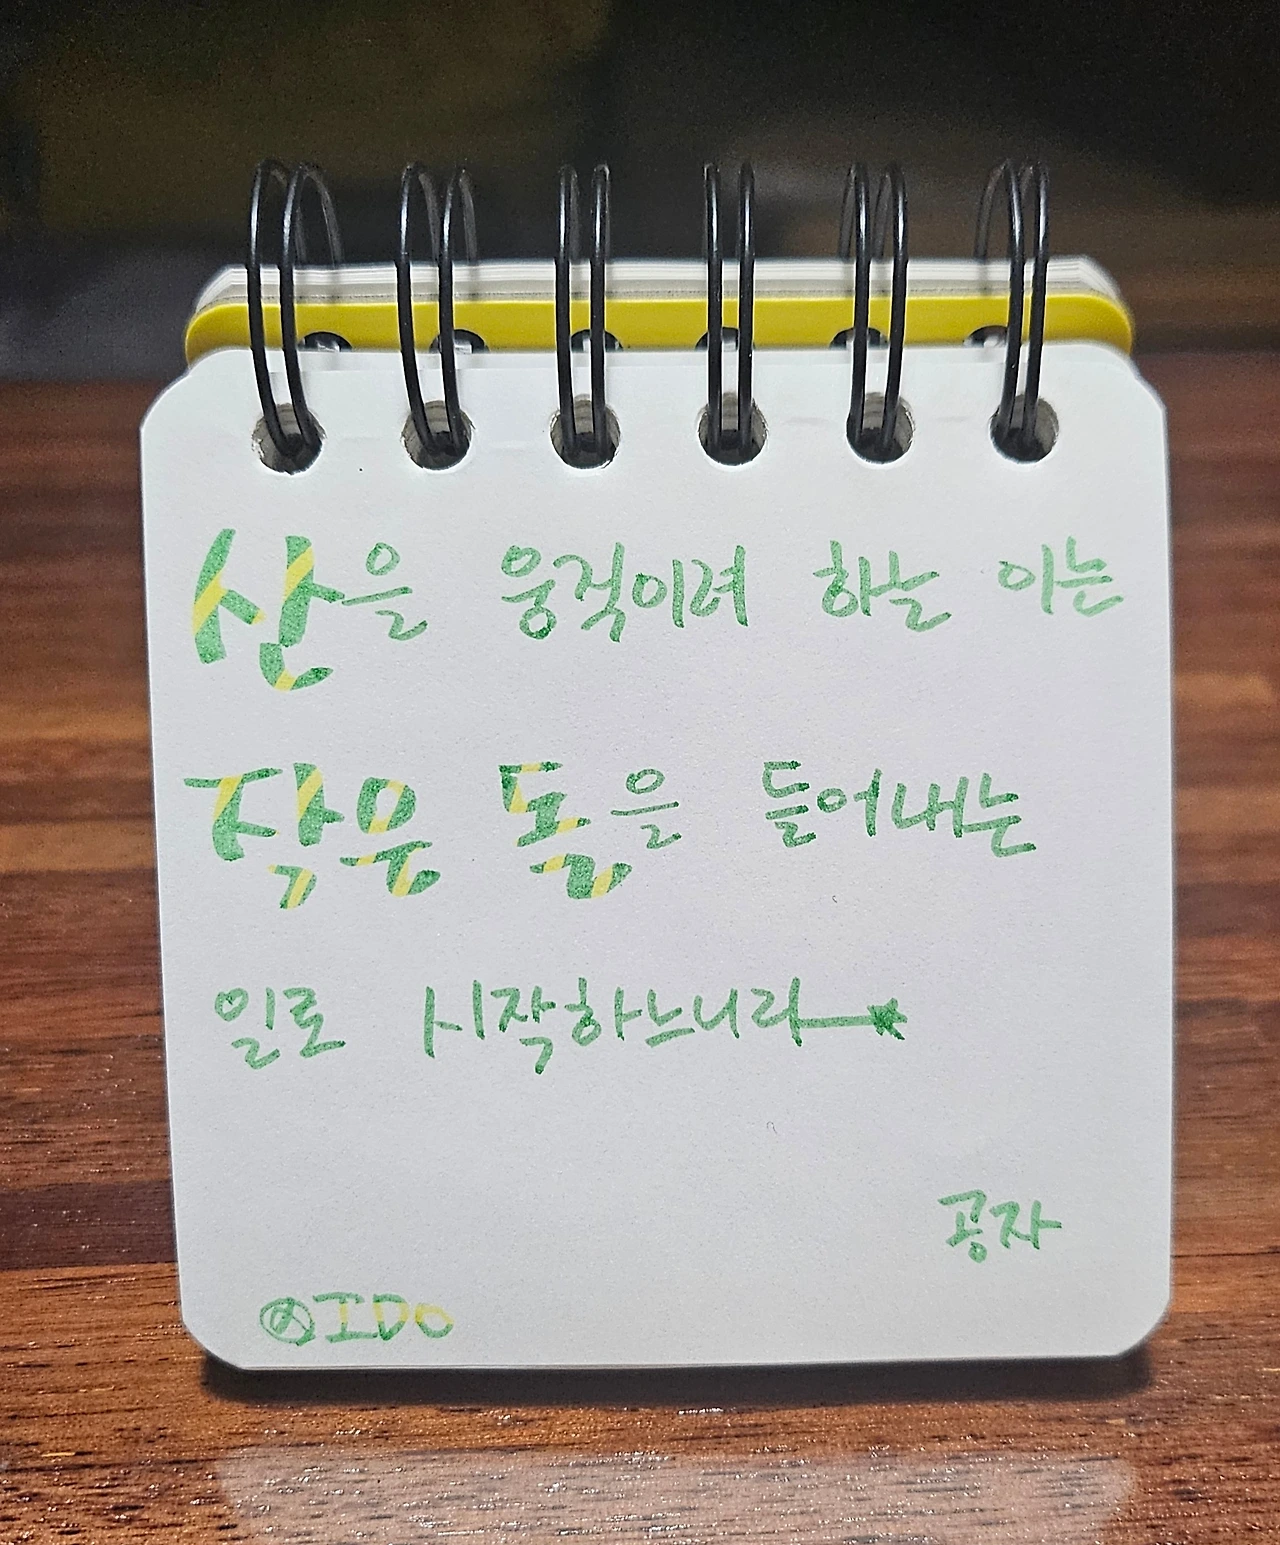 산을 움직이려 하는 이는
작은 돌을 들어내는
일로 시작하느니라
공자
IDO